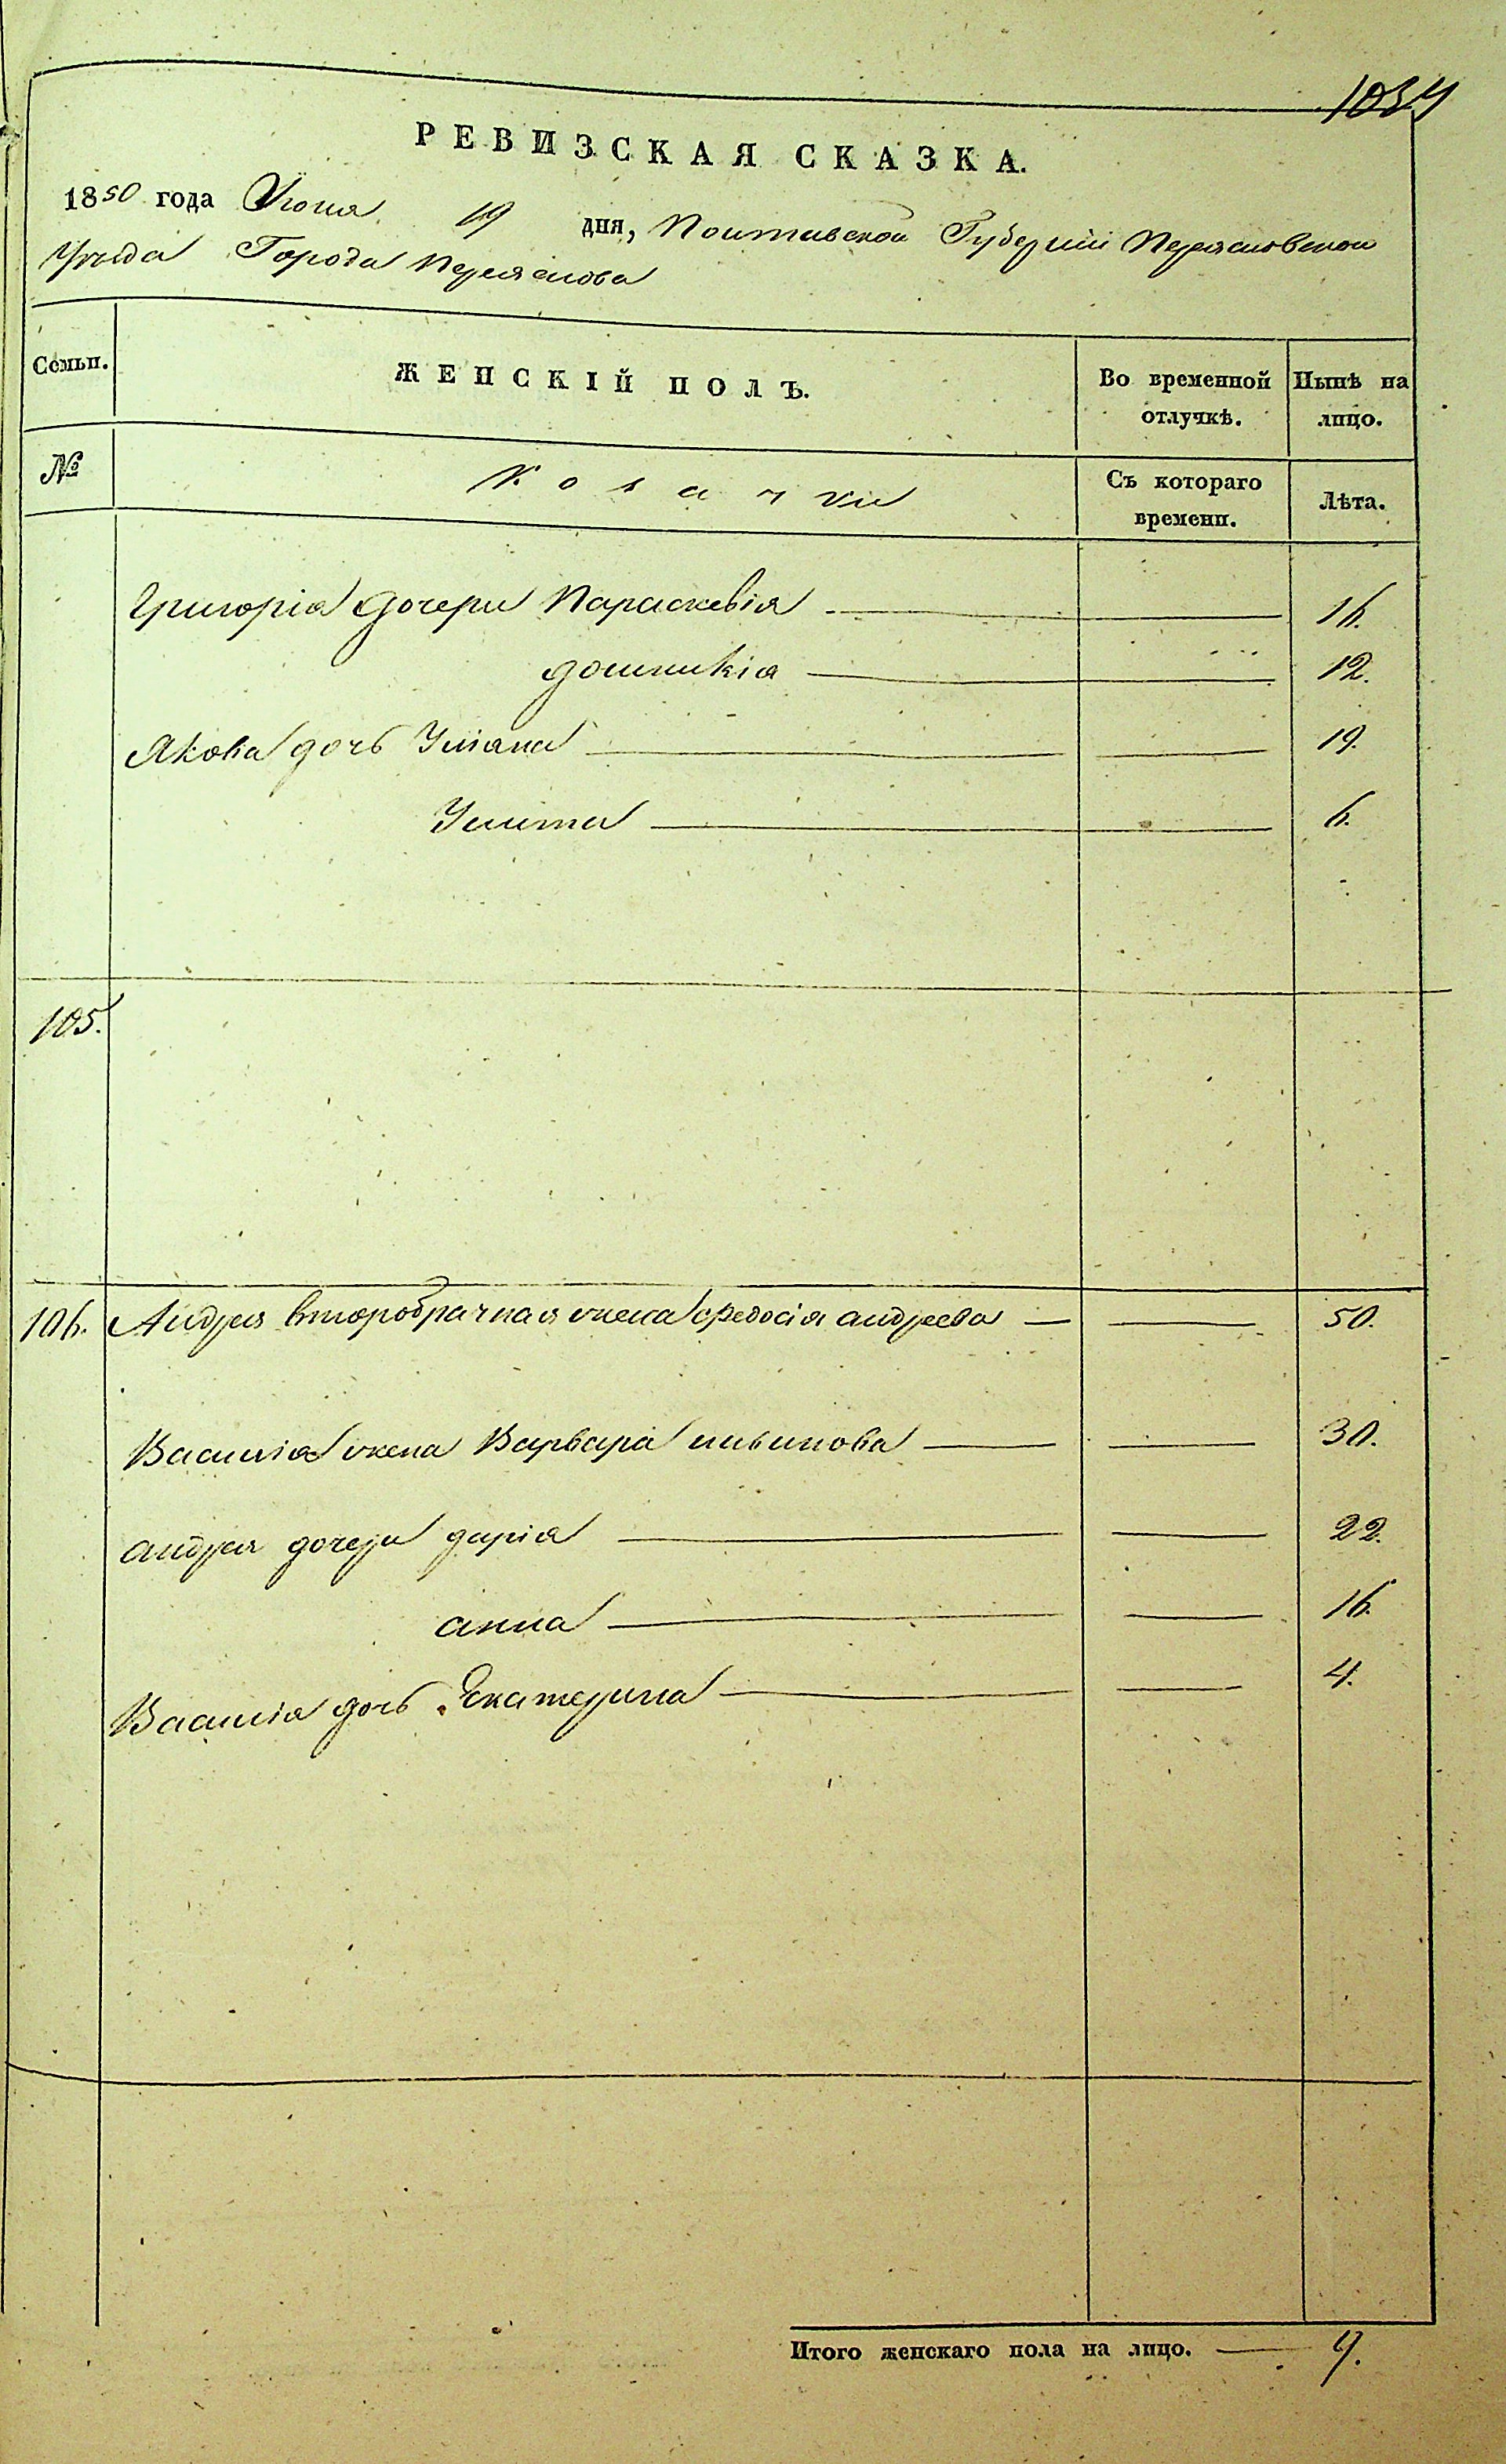 1034
РЕВИЗСКАЯ СКАЗКА.
1850 года Июня 19 дня, Полтавской Губерніи Переясловского
Уезда Города Переяслова
Семьи. ЖЕНСКІЙ ПОЛЪ. Во временной отлучкѣ. Нынѣ на лицо.
№ Козачки Съ котораго времени. Лѣта.
Григорія дочери Параскевія 16.
домникія 12.
Якова дочь Уліана 19.
Улита 6.
105.
106. Андрея второбрачная жена федосія андреева 50.
Василія жена Варвара 30.
андрея дочери дарія 22.
анна 16.
Василія дочь Екатерина 4.
Итого женскаго пола на лицо. 9.